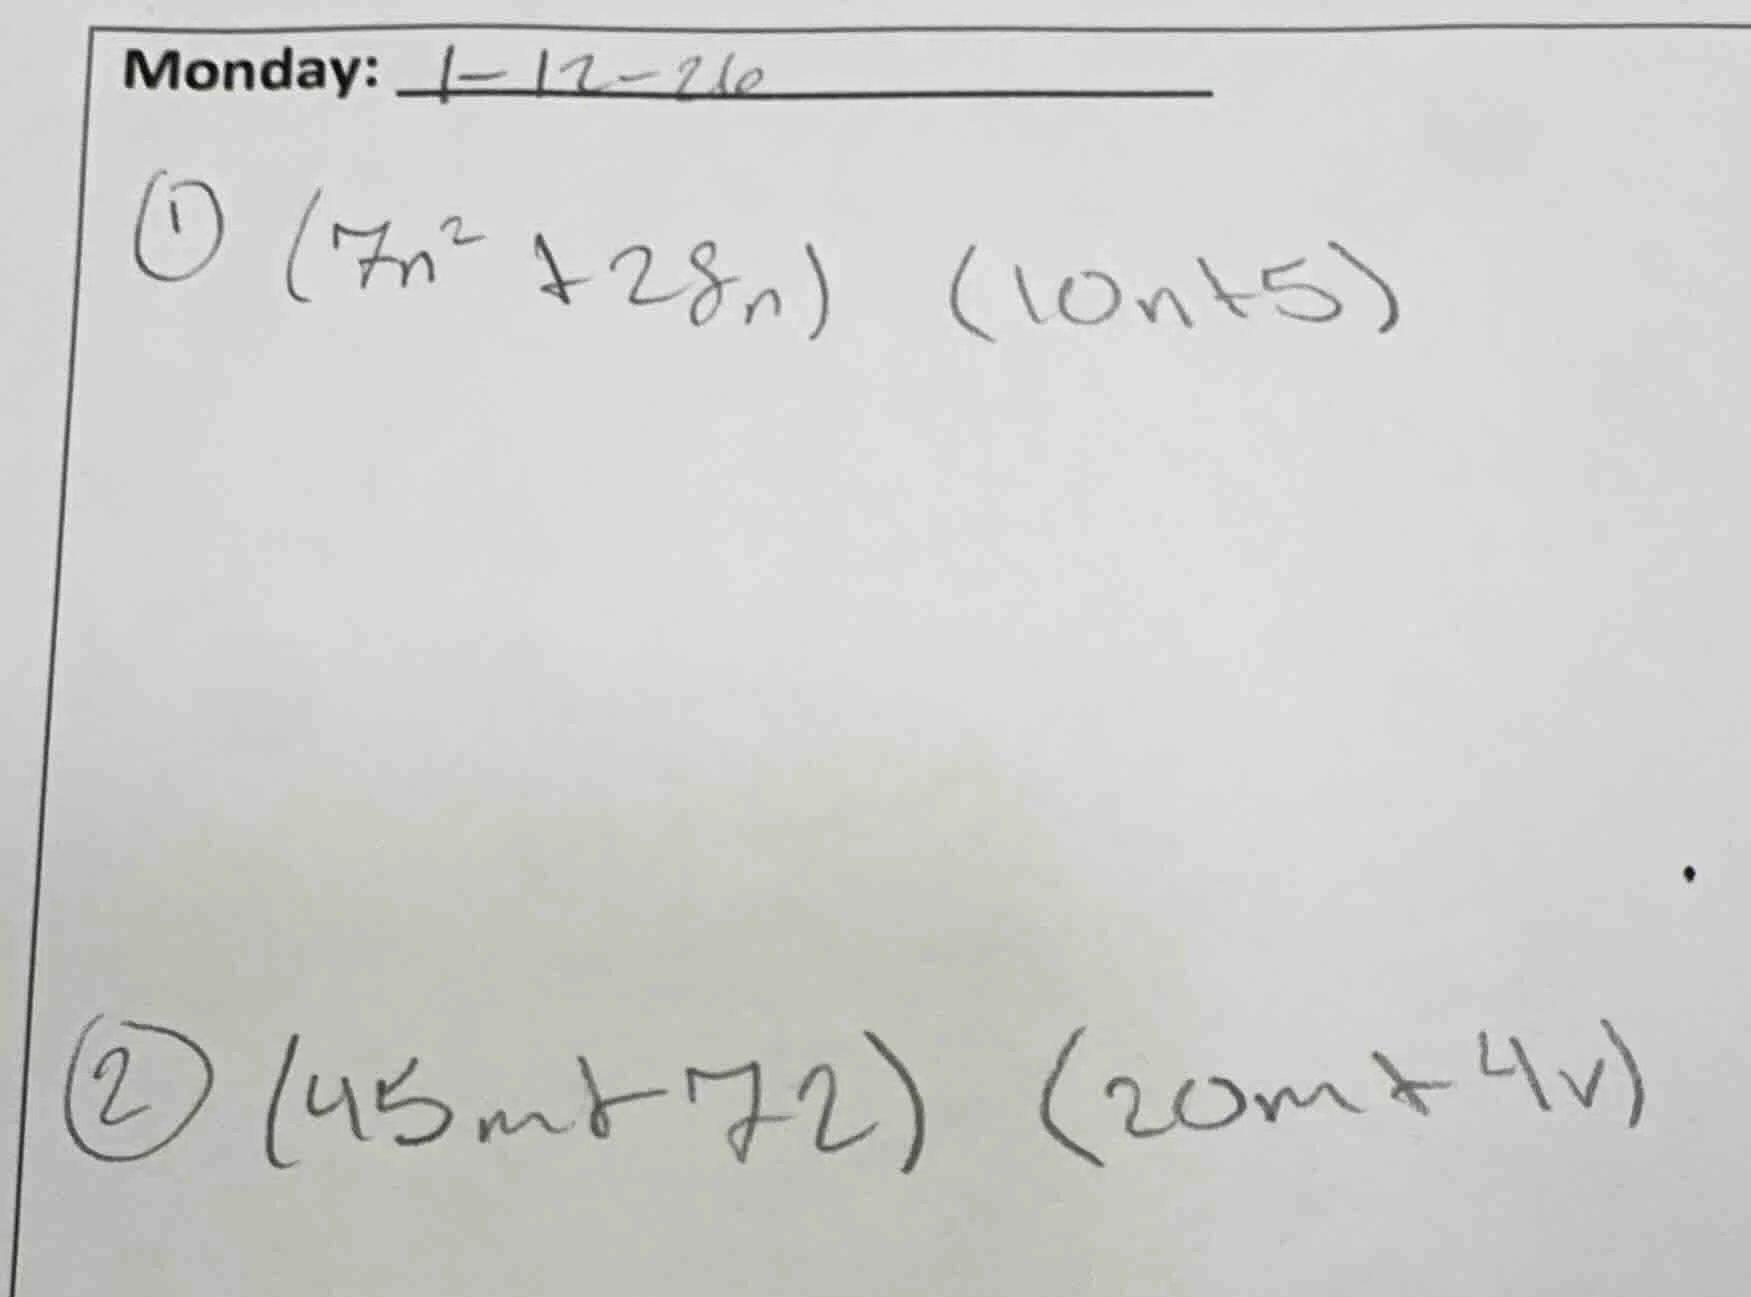 Monday: 1-12-26
① (7n² + 28n) (10n+5)
② (45m+72) (20m+4v)